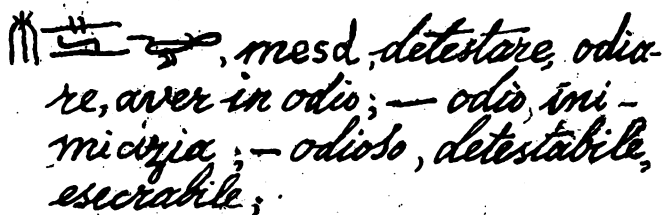 , mesd, detestare, odia-
re, aver in odio; — odio, ini-
micizia; — odioso, detestabile,
esecrabile;